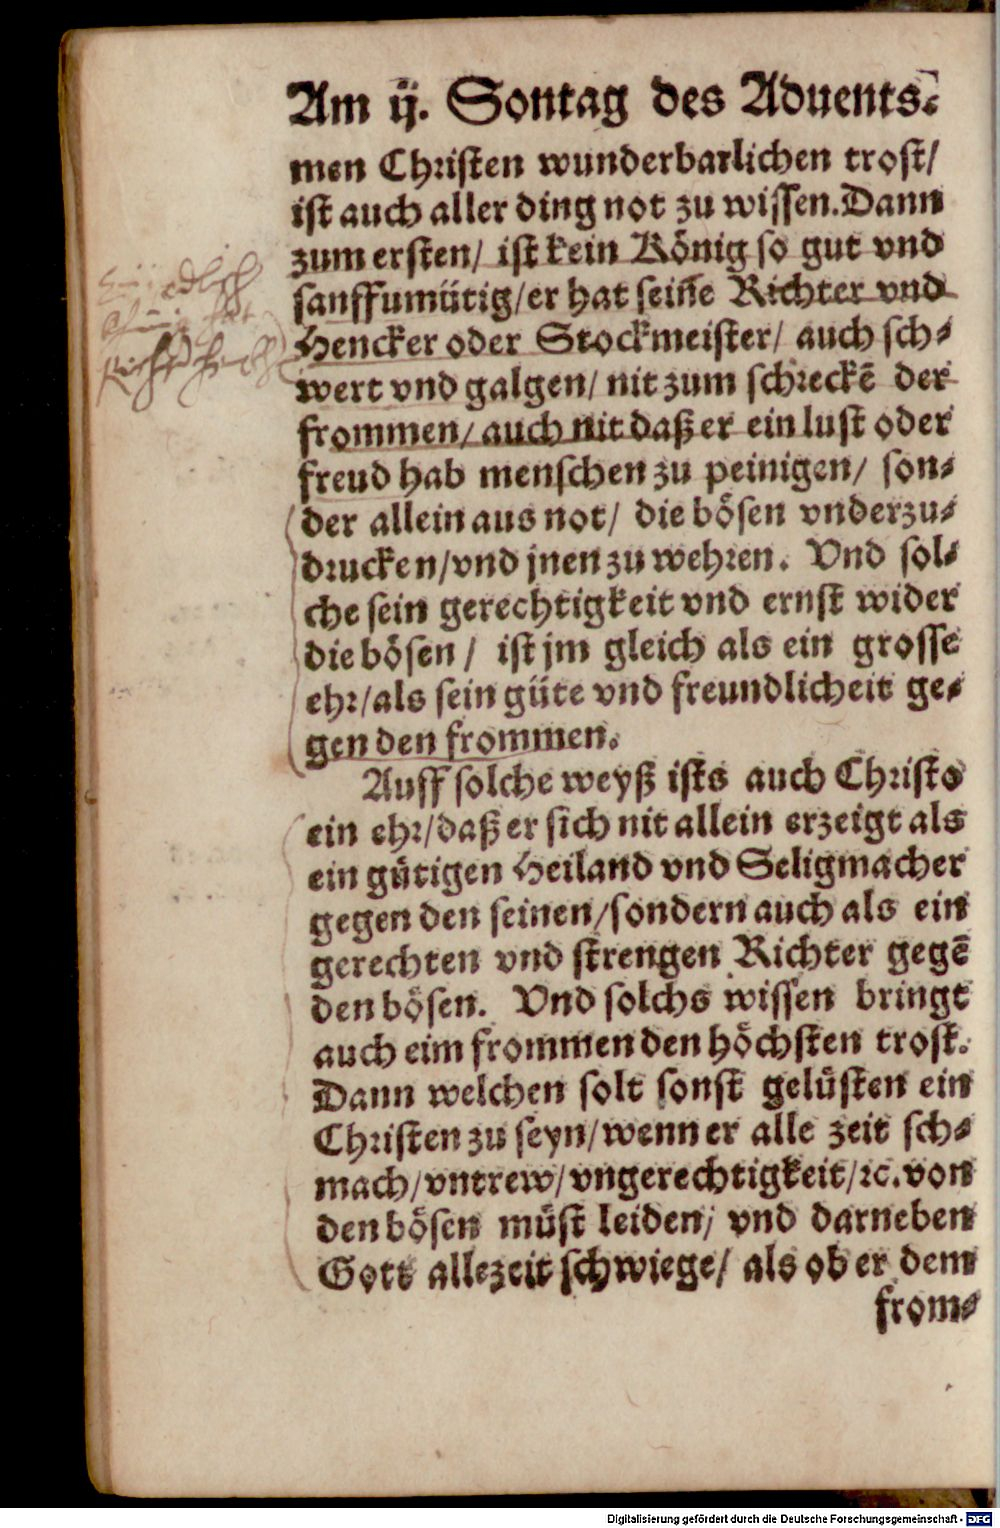 Am ij. Sontag des Aduents.
men Christen wunderbarlichen trost/
ist auch aller ding not zu wissen. Dann
zum ersten/ ist kein König so gut vnd
sanfftmütig/ er hat seine Richter vnd
Hencker oder Stockmeister/ auch sch⸗
wert vnd galgen/ nit zum schreckē der
frommen/ auch nit daß er ein lust oder
freud hab menschen zu peinigen/ son⸗
der allein aus not/ die bösen vnderzu⸗
drucken/ vnd jnen zu wehren. Vnd sol⸗
che sein gerechtigkeit vnd ernst wider
die bösen/ ist jm gleich als ein grosse
ehr/ als sein güte vnd freundlicheit ge⸗
gen den frommen.
Auff solche weyß ists auch Christo
ein ehr/ daß er sich nit allein erzeigt als
ein gütigen Heiland vnd Seligmacher
gegen den seinen/ sondern auch als ein
gerechten vnd strengen Richter gegē
den bösen. Vnd solchs wissen bringt
auch eim frommen den höchsten trost.
Dann welchen solt sonst gelüsten ein
Christen zu seyn/ wenn er alle zeit sch⸗
mach/ vntrew/ vngerechtigkeit/ ꝛc. von
den bösen müst leiden/ vnd darneben
Gott allezeit schwiege/ als ob er dem
from⸗
Digitalisierung gefördert durch die Deutsche Forschungsgemeinschaft - DFG